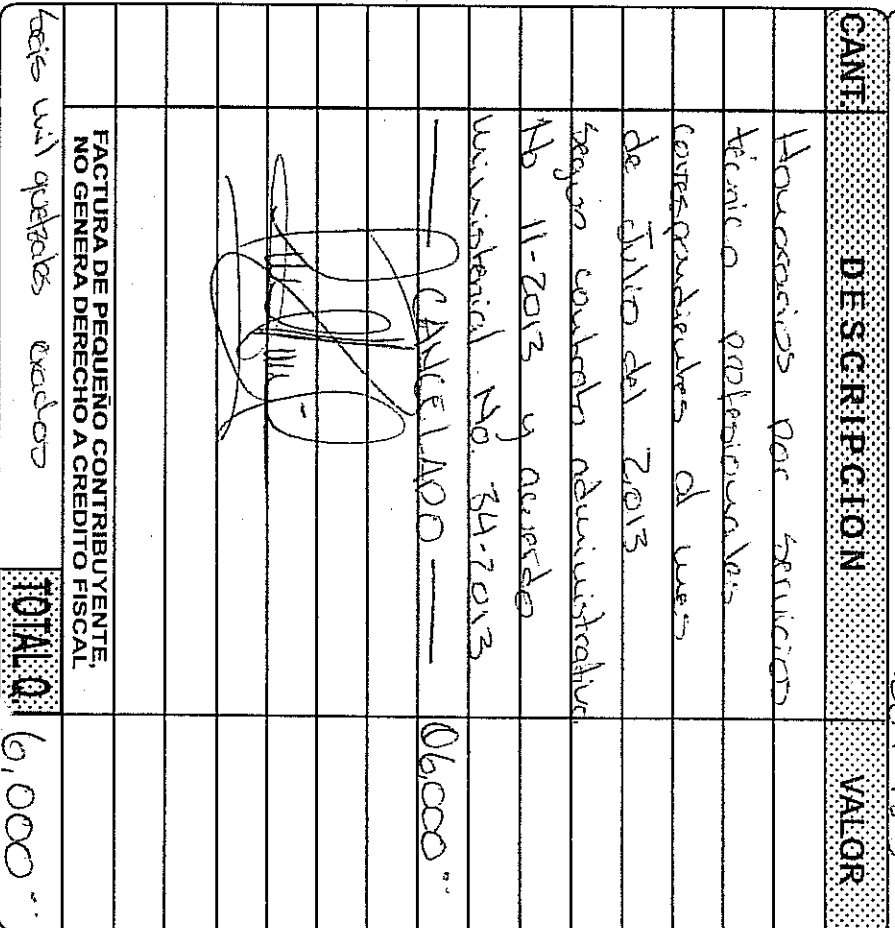 CANT. DESCRIPCION VALOR
Honorarios por servicios
técnico profesionales
correspondientes al mes
de Julio del 2013
según contrato administrativo
No 11-2013 y acuerdo
ministerial No. 34-2013
— CANCELADO — Q6,000.-
FACTURA DE PEQUEÑO CONTRIBUYENTE,
NO GENERA DERECHO A CREDITO FISCAL
Seis mil quetzales exactos TOTAL Q. 6,000.-